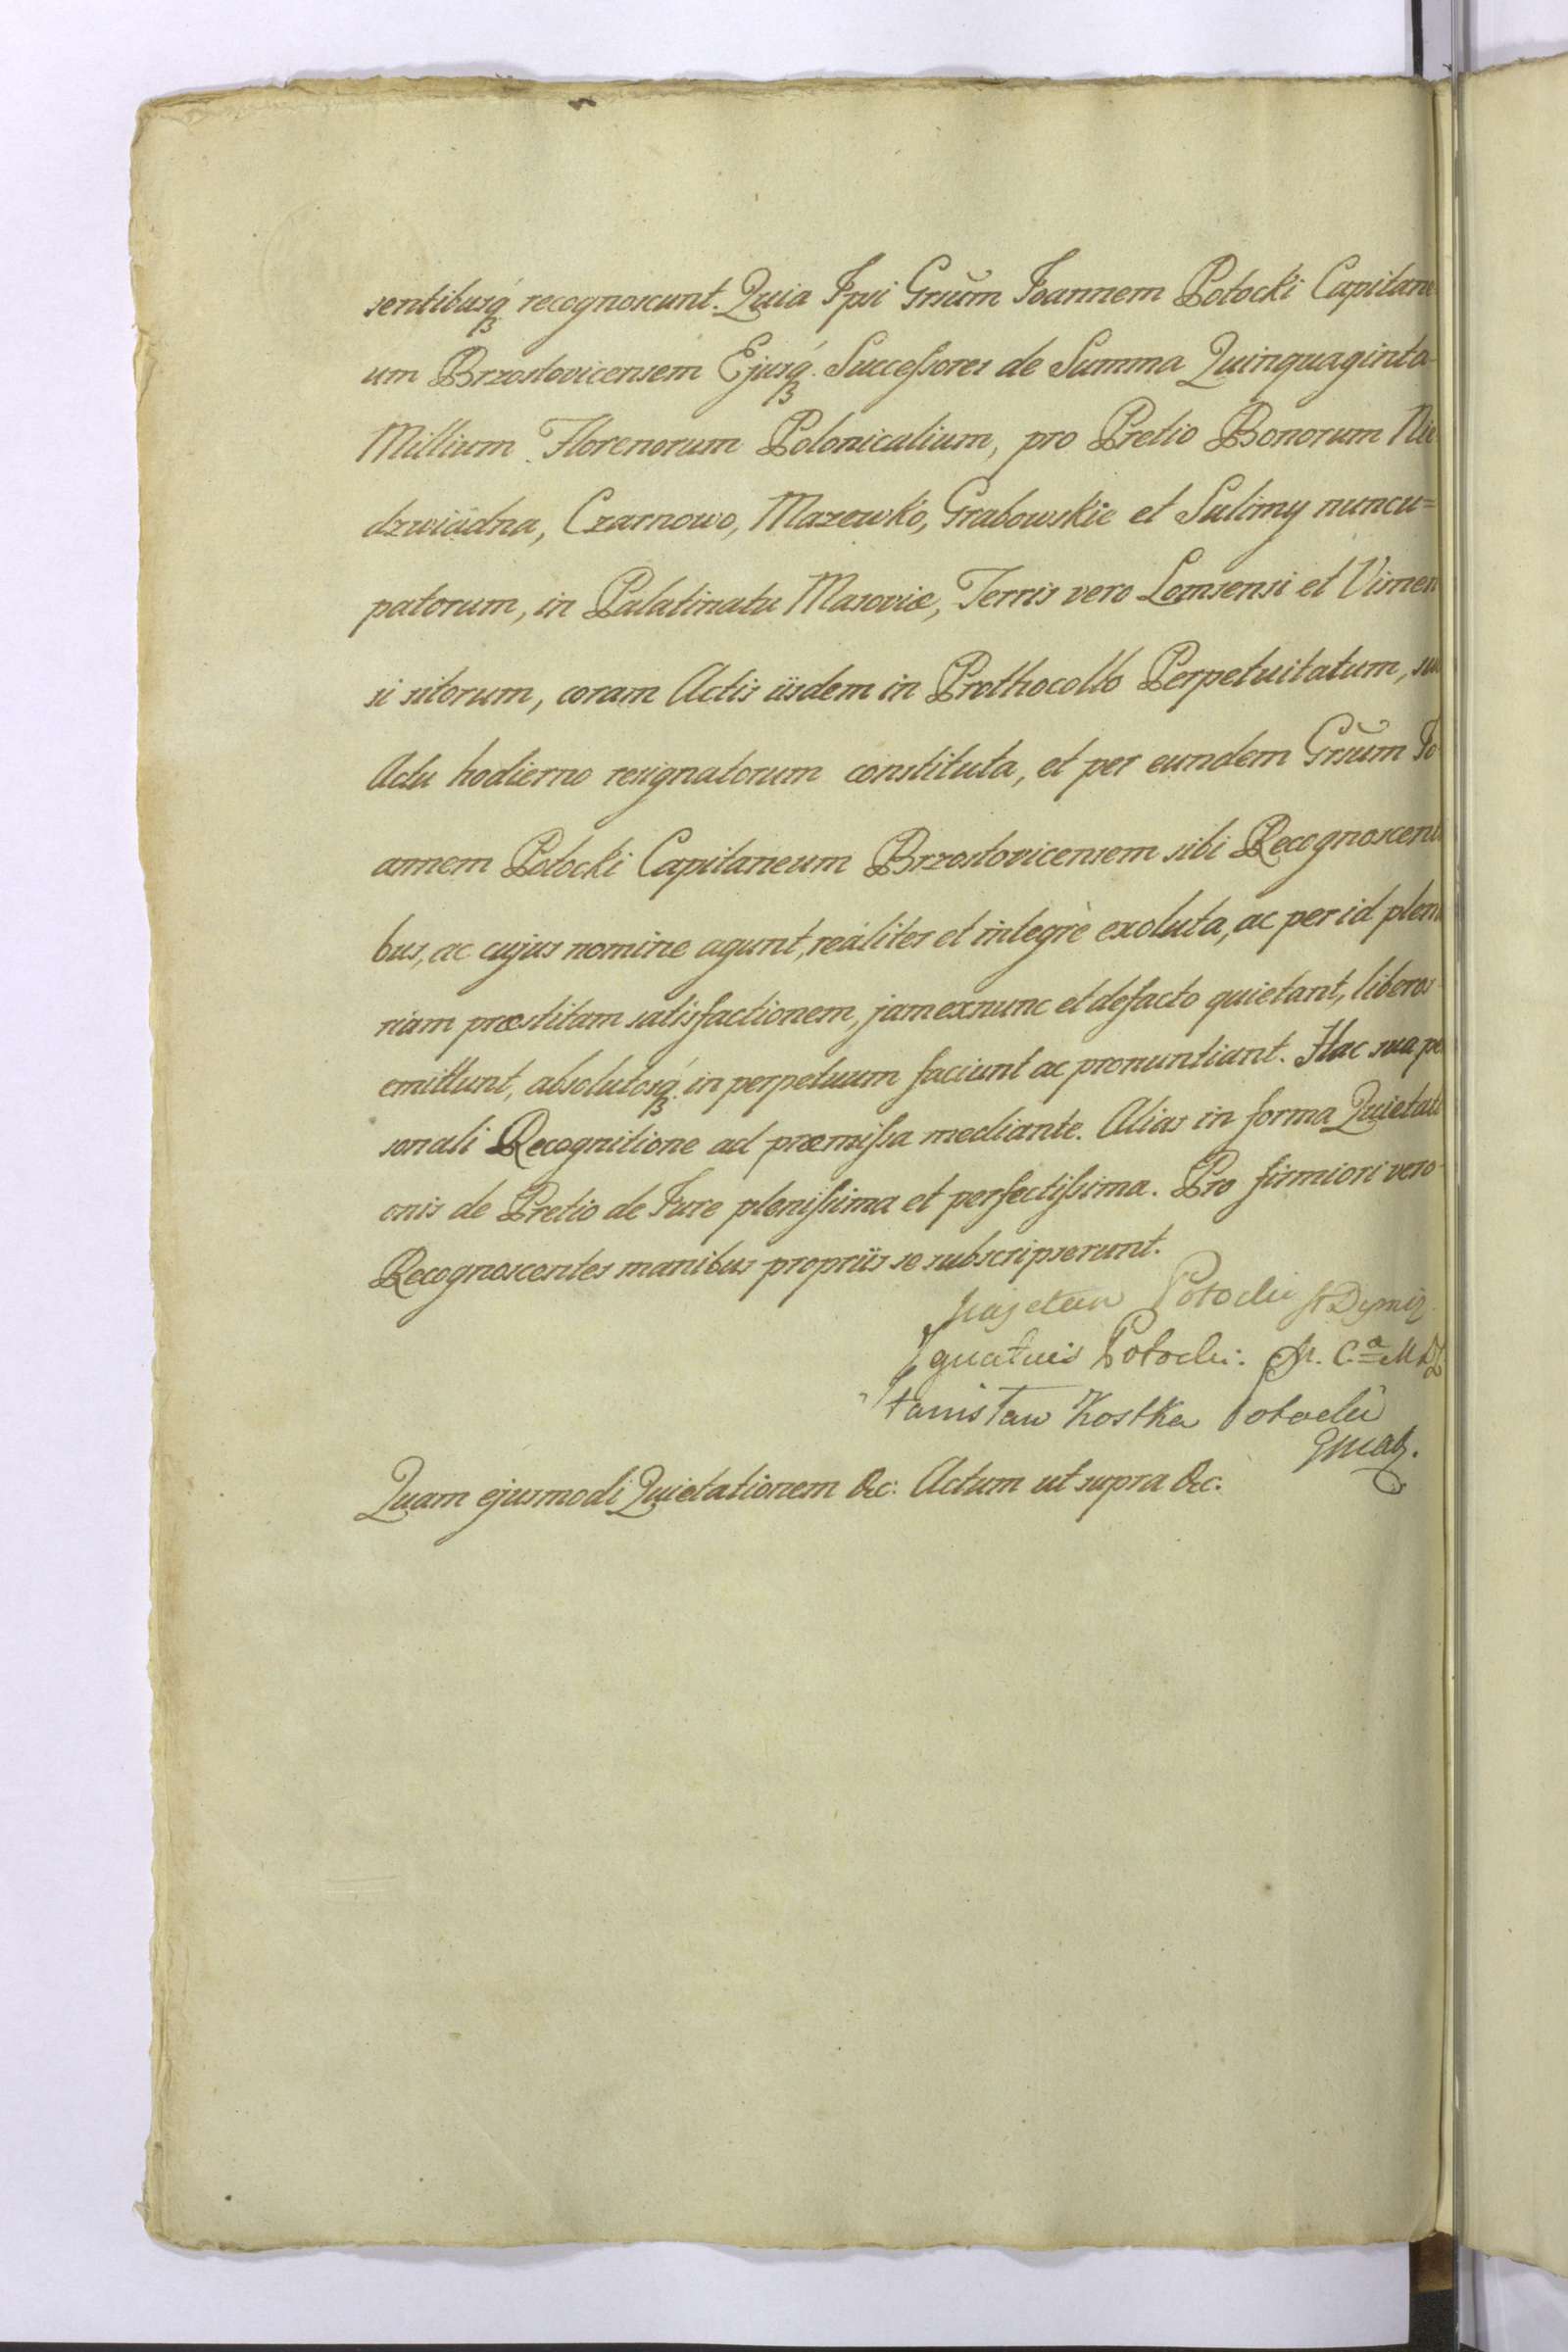 sentibusq́ꝫ recognoscunt. Quia Ipsi Grsũm Joannem Potocki Capitane
um Brzostovicensem Ejusq́ꝫ. Successores de Summa Quinquaginta
Millium Florenorum Polonicalium, pro Pretio Bonorum Nie
dzwiadna, Czarnowo, Mazewko, Grabowskie et Sulimy nuncu=
patorum, in Palatinatu Masoviæ, Terris vero Lomsensi et Visnen
si sitorum, coram Actis iisdem in Prothocollo Perpetuitatum, sub
Actu hodierno resignatorum constituta, et per eundem Grsũm Jo
annem Potocki Capitaneum Brzostovicensem sibi Recognoscenti
bus, ac cujus nomine agunt, realiter et integrè exoluta, ac per id plena
riam præstitam satisfactionem, jam exnunc et defacto quietant, liberos
emittunt, absolutosq́ꝫ. in perpetuum faciunt ac pronuntiant. Hac sua per
sonali Recognitione ad præmissa mediante. Alias in forma Quietati
onis de Pretio de Jure plenissima et perfectissima. Pro firmiori vero
Recognoscentes manibus propriis se subscripserunt.
Kajetan Potocki St Dymir
Ignatius Potocki.
Stanisław Kostka Potocki
Quam ejusmodi Quietationem &c: Actum ut supra &c.